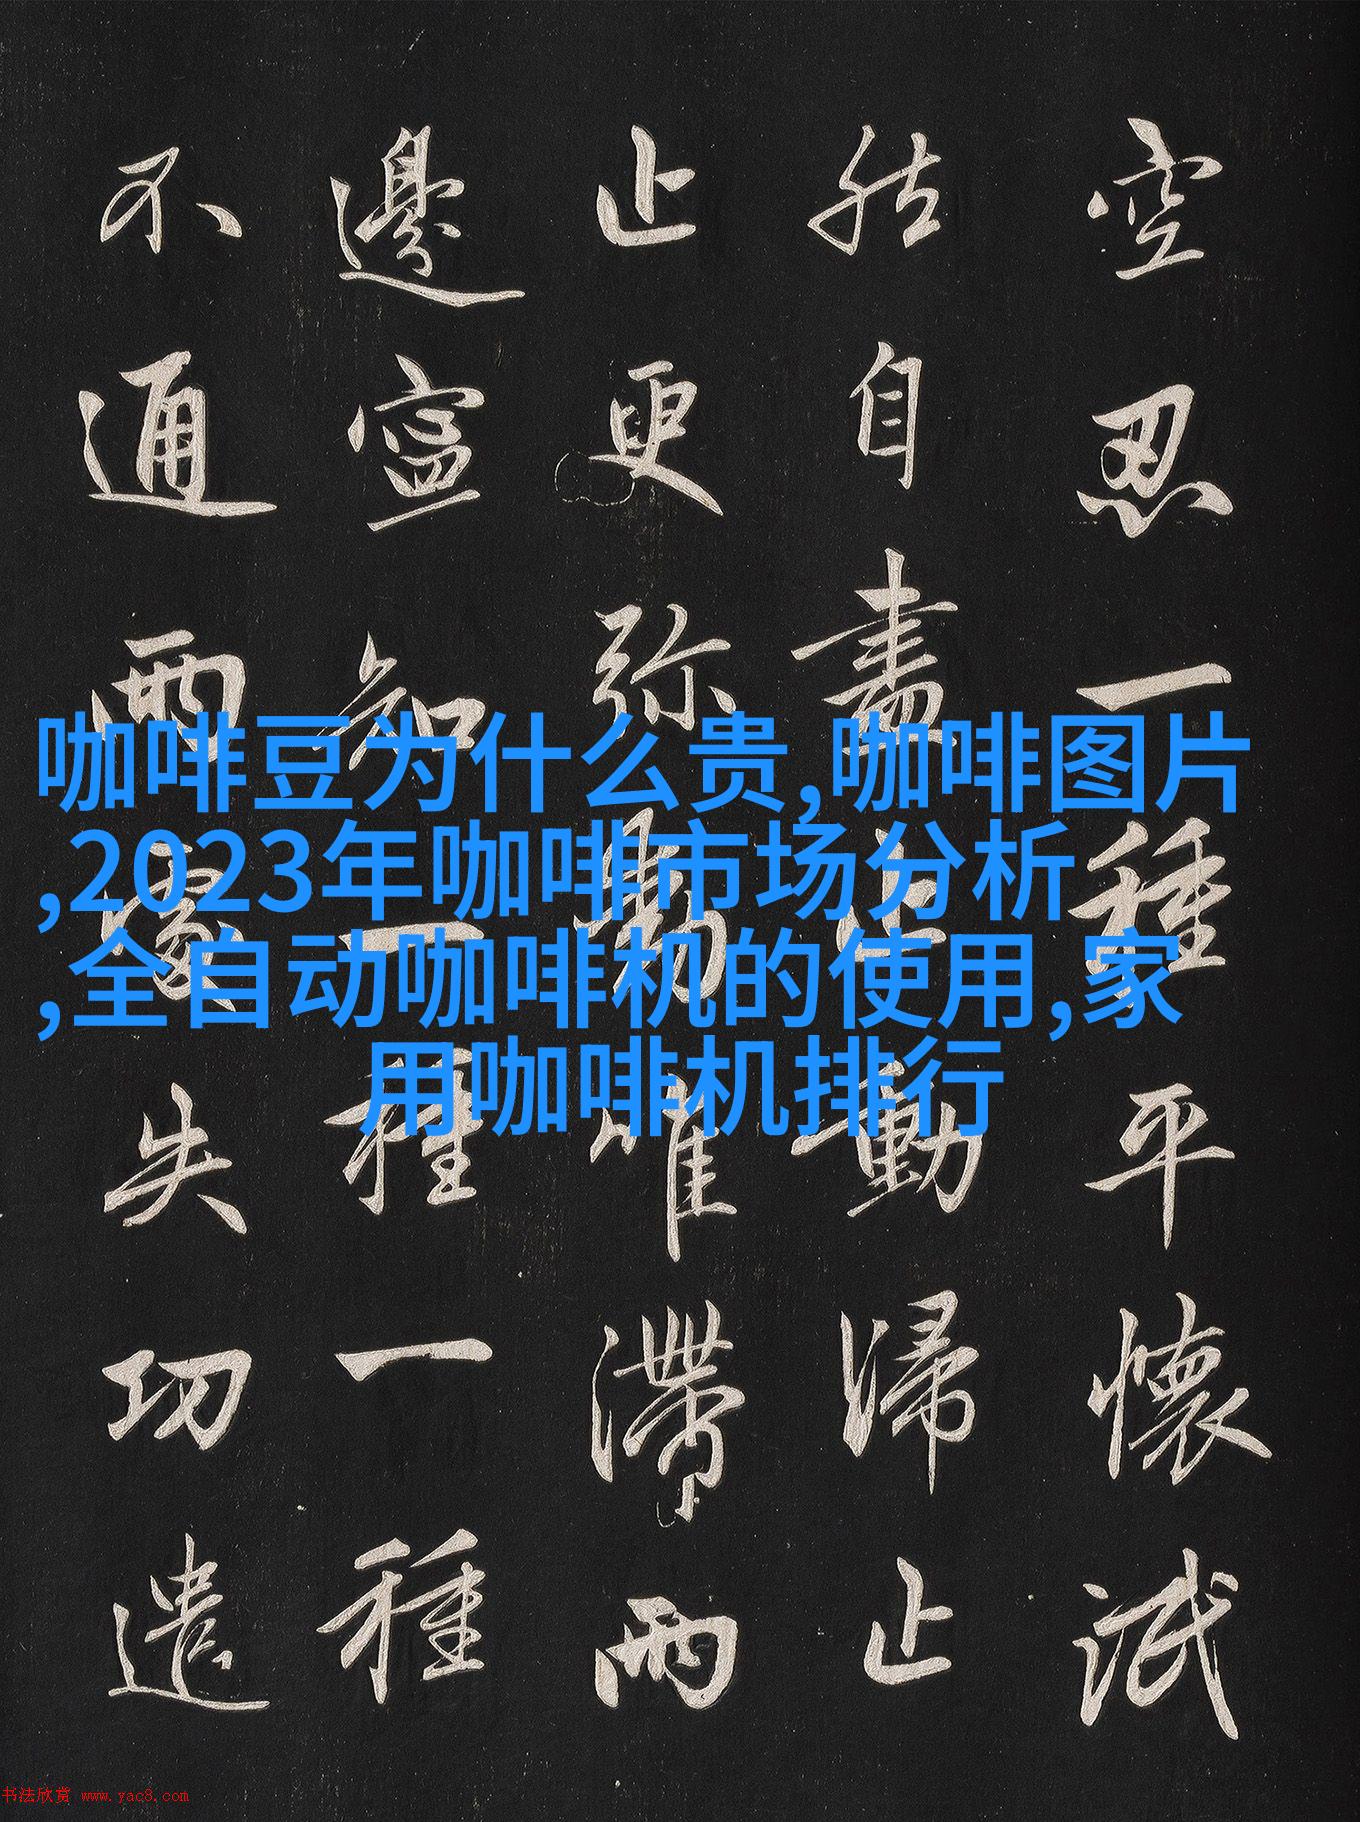 空忍一種平懷泯
然自盡止動歸止
止更弥動唯滯兩
邊寧知一種一種
不通兩處失功遣
咖啡豆为什么贵,咖啡图片
,2023年咖啡市场分析
,全自动咖啡机的使用,家
用咖啡机排行
书法欣赏 www.yac8.com